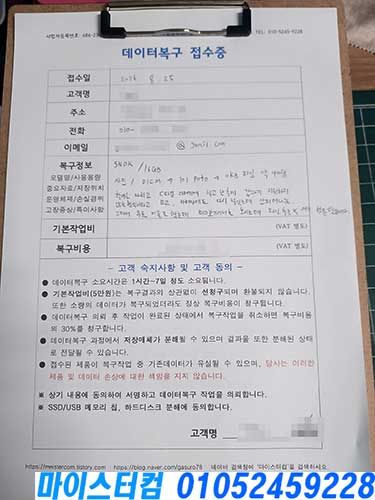 사업자등록번호: 686-2
TEL: 010-5245-9228
데이터복구 접수증
접수일
고객명
주소
전화 010-
이메일 @ gmail.com
복구정보 SNDK / 16GB
모델명/사용용량
중요자료/저장위치 사진 / DCIM
운영체제/손실경위
고장증상/특이사항
기본작업비 (VAT 별도)
복구비용 (VAT 별도)
- 고객 숙지사항 및 고객 동의 -
● 데이터복구 소요시간은 1시간~7일 정도 소요됩니다.
● 기본작업비(5만원)는 복구결과의 상관없이 선청구되며 환불되지 않습니다.
또한 소량의 데이터가 복구되었더라도 정상 복구비용이 청구됩니다.
● 데이터복구 의뢰 후 작업이 완료된 상태에서 복구작업을 취소하면 복구비용
의 30%를 청구합니다.
● 데이터복구 과정에서 저장매체가 분해될 수 있으며 결과물 또한 분해된 상태
로 전달될 수 있습니다.
● 접수된 제품이 복구작업 중 기존데이터가 유실될 수 있으며, 당사는 이러한
제품 및 데이터 손상에 대한 책임을 지지 않습니다.
※ 상기 내용에 동의하여 서명하고 데이터복구 작업을 의뢰합니다.
※ SSD/USB 메모리 칩, 하드디스크 분해에 동의합니다.
고객명
https://meistercom.tistory.com https://blog.naver.com/gasuro78 네이버 검색창에 "마이스터컴"을 검색하세요.
마이스터컴 01052459228